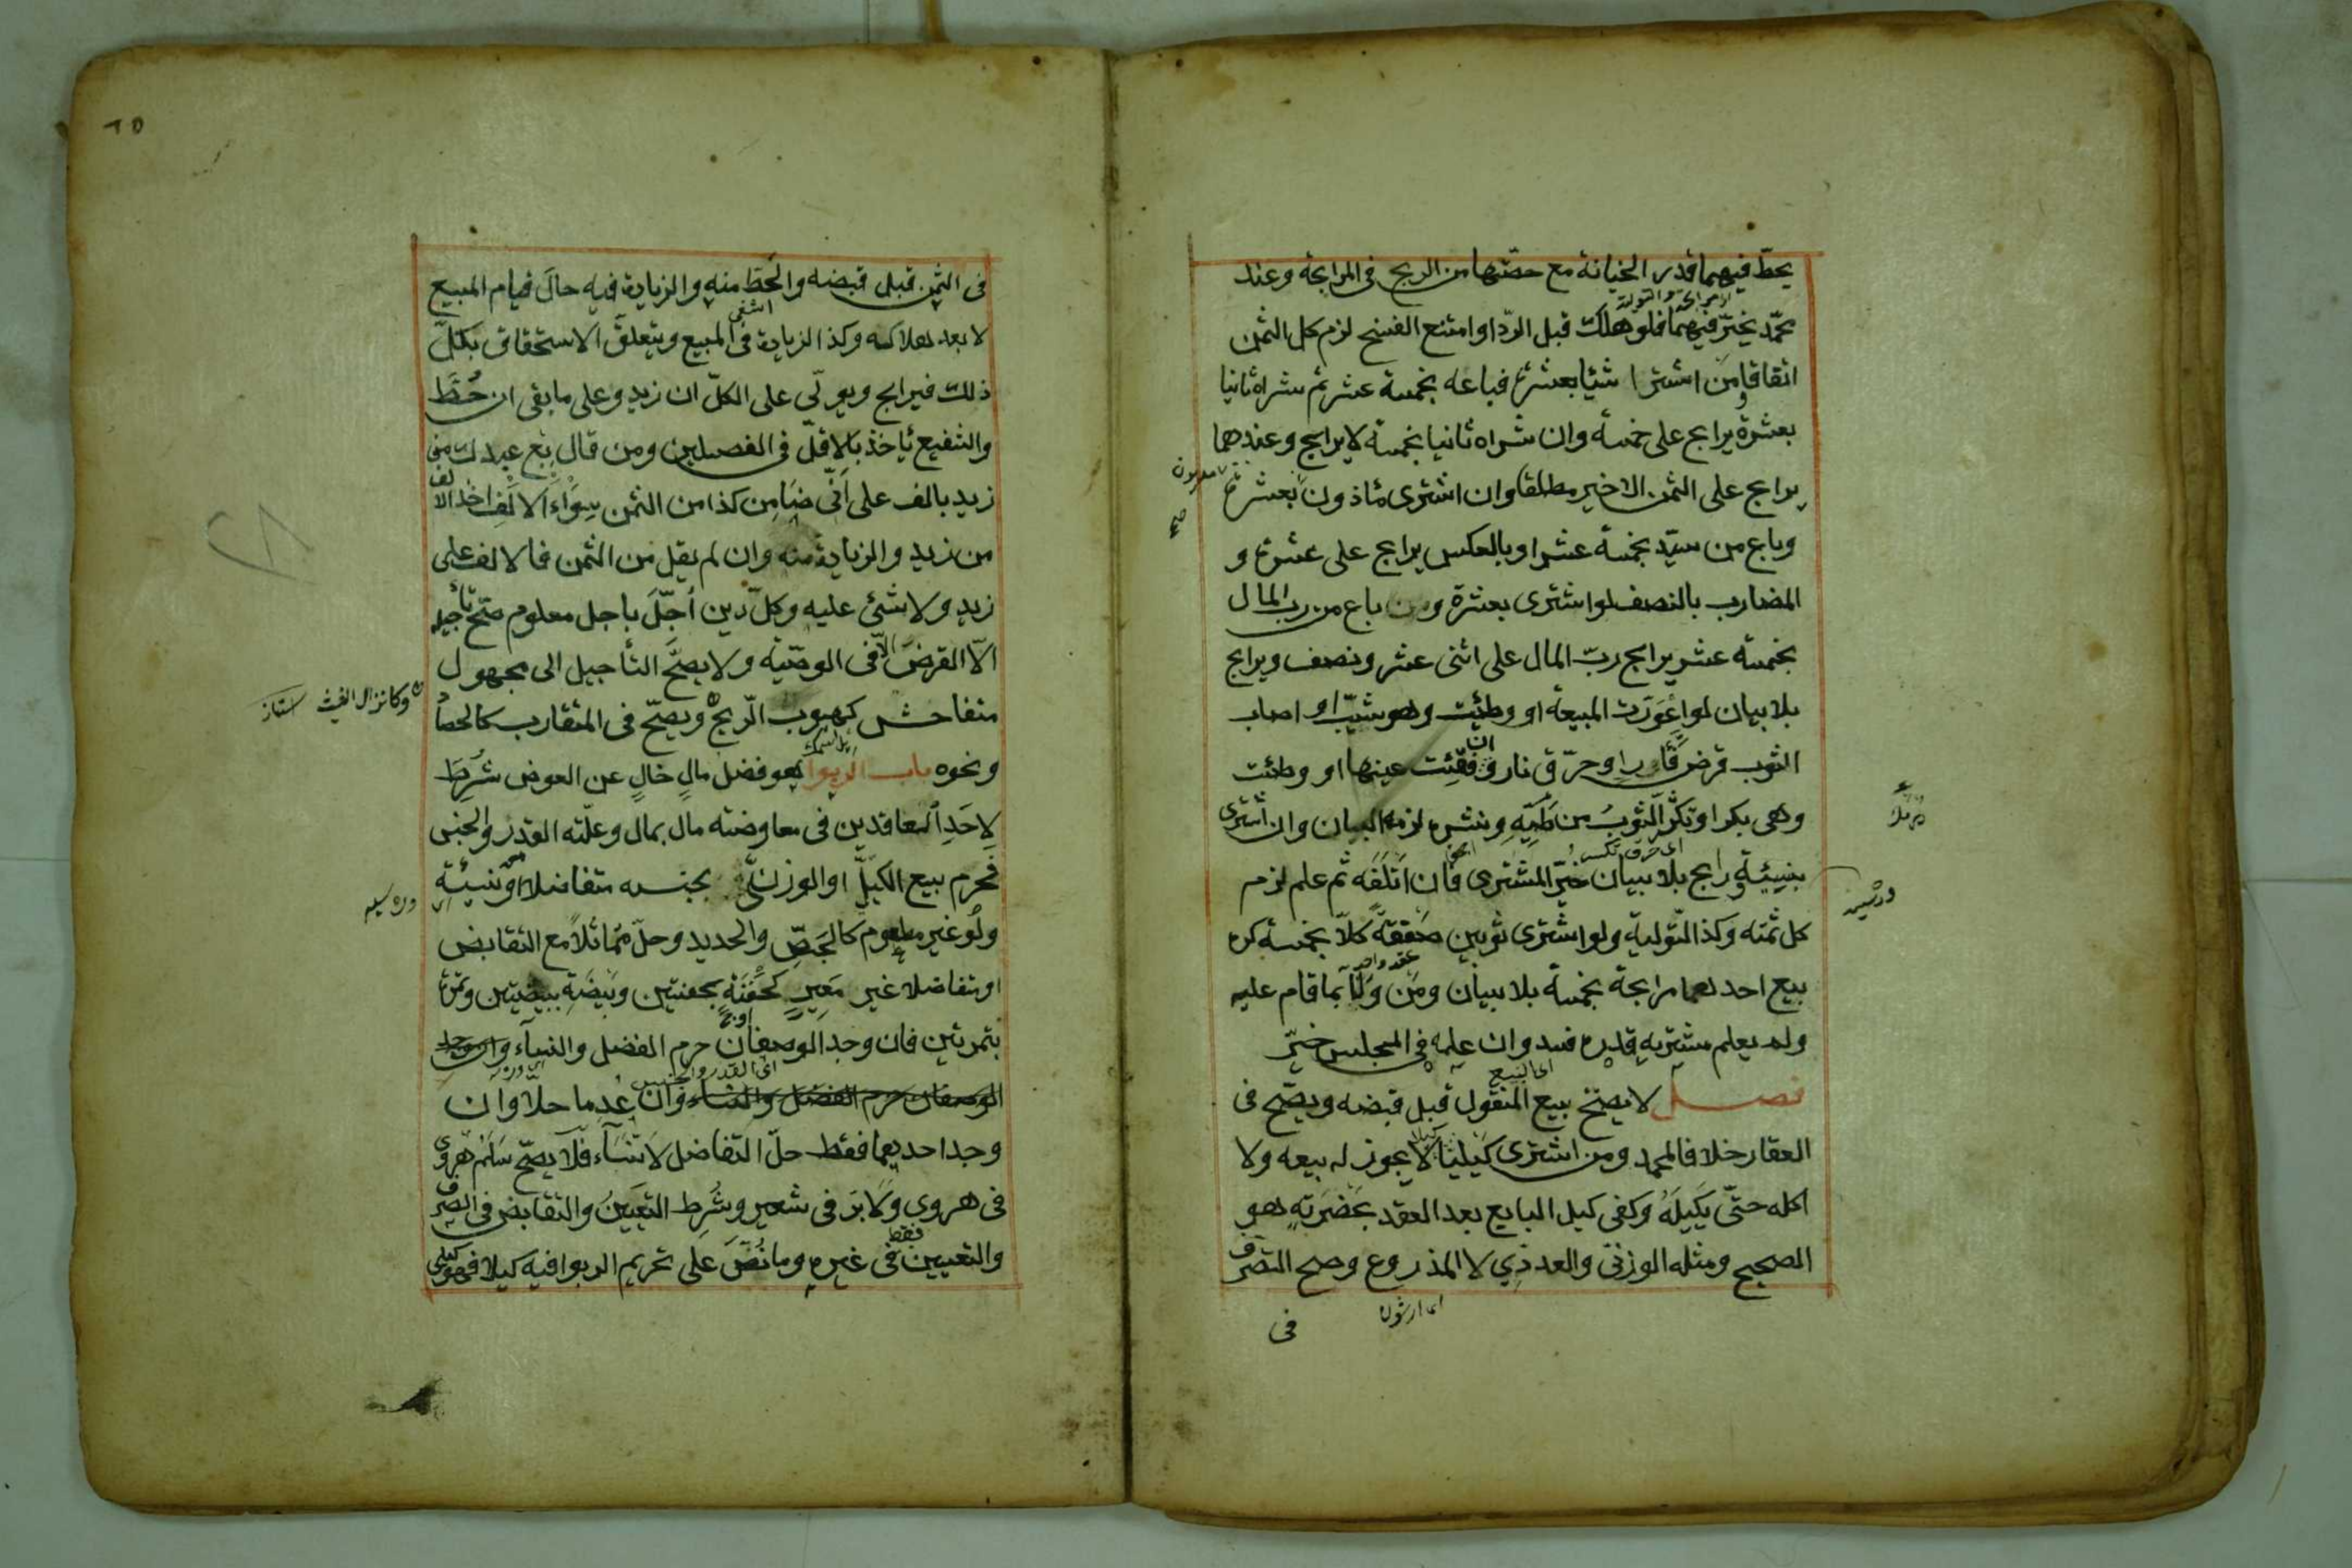 يحطّ فيهما قدر الخيانة مع حصّتها من الربح فى المرابحة وعند
محمّد يخيّر فيهما فلو هلك قبل الردّ او امتنع الفسخ لزم كل الثمن
اتفاقا ومن اشترا شيئا بعشرة فباعه بخمسة عشر ثم شراه ثانيا
بعشرة يرابح على خمسة وان شراه ثانيا بخمسة لا يرابح وعندهما
يرابح على الثمن الاخير مطلقا وان اشترى مأذون بعشرة
وباع من سيّد بخمسة عشر او بالعكس يرابح على عشرة و
المضارب بالنصف لو اشترى بعشرة و باع من رب المال
بخمسة عشر يرابح ربّ المال على اثنى عشر ونصف ويرابح
بلا بيان لو اعورّت المبيعة او وطئت وهو شيّب او اصاب
الثوب قرض فأر او حرق نار وان فقئت عينها او وطئت
وهى بكر او تكسّر الثوب من طيّه ونشره لزمه البيان وان اشترى
بنسيئة ورابح بلا بيان خيّر المشترى فان اتلفه ثم علم لزم
كل ثمنه وكذا التولية ولو اشترى ثوبين صفقة كلّا بخمسة كره
عقد واحد
بيع احدهما مرابحة بخمسة بلا بيان ومن ولّا بما قام عليه
ولم يعلم مشتريه قدره فسد وان علمه فى المجلس خيّر
اى البيع
فصل لا يصحّ بيع المنقول قبل قبضه ويصحّ فى
العقار خلافا لمحمد ومن اشترى كيليّا كيلا لا يجوز له بيعه ولا
اكله حتّى يكيله وكفى كيل البايع بعد العقد بحضرته هو
الصحيح ومثله الوزنىّ والعددىّ لا المذروع وصح التصرف
فى
فى الثمن قبل قبضه والحطّ منه والزيادة فيه حال قيام المبيع
لا بعد هلاكه وكذا الزيادة فى المبيع ويتعلّق الاستحقاق بكلّ
ذلك فيرابح ويولّى على الكلّ ان زيد وعلى ما بقى ان حُطّ
والشفيع يأخذ بالاقلّ فى الفصلين ومن قال بع عبدك من
زيد بالف على انّى ضامن كذا من الثمن سواء الالف اخذ الالف
من زيد والزيادة منه وان لم يقل من الثمن فالالف على
زيد ولا شئ عليه وكلّ دين اجّل باجل معلوم صحّ تأجيله
الّا القرض الّا فى الوصيّة ولا يصحّ التأجيل الى مجهول
متفاحش كهبوب الريح ويصحّ فى المتقارب كالحصاد
ونحوه باب الربوا هو فضل مال خال عن العوض شرط
لاحد العاقدين فى معاوضة مال بمال وعلّته القدر والجنس
فحرم بيع الكيلىّ او الوزنىّ بجنسه متفاضلا او نسيئة
ولو غير مطعوم كالجصّ والحديد وحلّ متماثلا مع التقابض
او متفاضلا غير معير كحفنة بحفنتين وبيضة ببيضتين وتمرة
بتمرتين فان وجد الوصفان حرم الفضل والنساء وان وجد
اى القدر والجنس
الوصفان حرم الفضل والنساء وان عدما حلّا وان
وجد احدهما فقط حلّ التفاضل لا النساء فلا يصحّ سلم هروى
فى هروى ولا برّ فى شعير وشرط التعيين والتقابض فى الصرف
والتعيين فقط فى غيره وما نصّ على تحريم الربوا فيه كيلا فهو كيلى